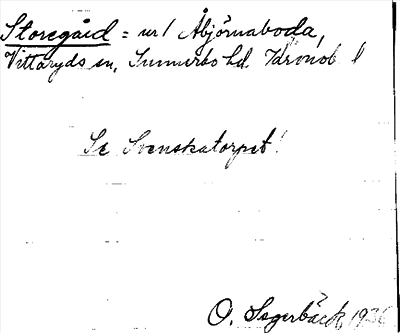 Storegård = nr 1 Åbjörnaboda,
Vittaryds sn, Sunnerbo hd. Kronob. l
Se Svenskatorpet!
O. Segerbäck, 1936